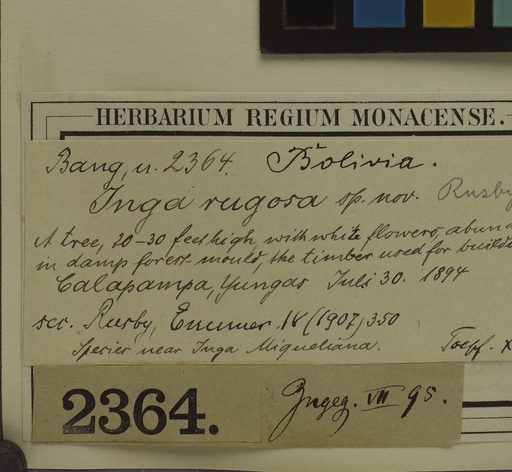 HERBARIUM REGIUM MONACENSE.
Bang, n. 2364. Bolivia.
Inga rugosa sp. nov. Rusby
A tree, 20-30 feet high, with white flowers, abund
in damp forest mould, the timber used for build
Calapampa, Yungas Juli 30. 1894
sec. Rusby, Enumer. IV (1907) 350
Species near Inga Miqueliana.
Toepf.
2364. Ingeg. VII 95.